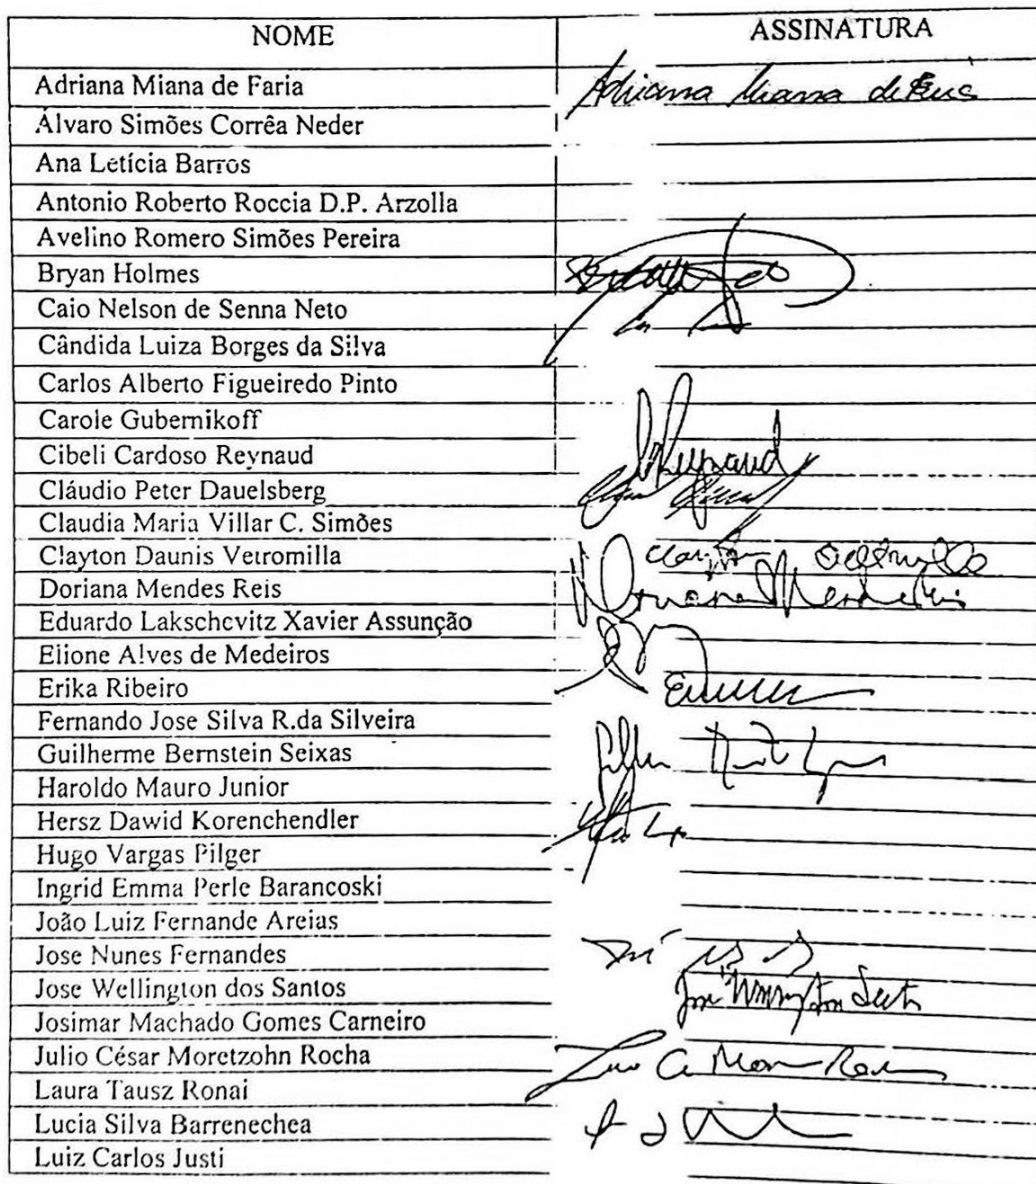 NOME ASSINATURA
Adriana Miana de Faria Adriana Miana de Faria
Álvaro Simões Corrêa Neder
Ana Letícia Barros
Antonio Roberto Roccia D.P. Arzolla
Avelino Romero Simões Pereira
Bryan Holmes
Caio Nelson de Senna Neto
Cândida Luiza Borges da Silva
Carlos Alberto Figueiredo Pinto
Carole Gubernikoff
Cibeli Cardoso Reynaud Reynaud
Cláudio Peter Dauelsberg
Claudia Maria Villar C. Simões
Clayton Daunis Vetromilla Clayton Vetromilla
Doriana Mendes Reis Doriana Mendes Reis
Eduardo Lakschevitz Xavier Assunção
Elione Alves de Medeiros
Erika Ribeiro
Fernando Jose Silva R.da Silveira
Guilherme Bernstein Seixas
Haroldo Mauro Junior
Hersz Dawid Korenchendler
Hugo Vargas Pilger
Ingrid Emma Perle Barancoski
João Luiz Fernande Areias
Jose Nunes Fernandes
Jose Wellington dos Santos
Josimar Machado Gomes Carneiro
Julio César Moretzohn Rocha
Laura Tausz Ronai
Lucia Silva Barrenechea
Luiz Carlos Justi